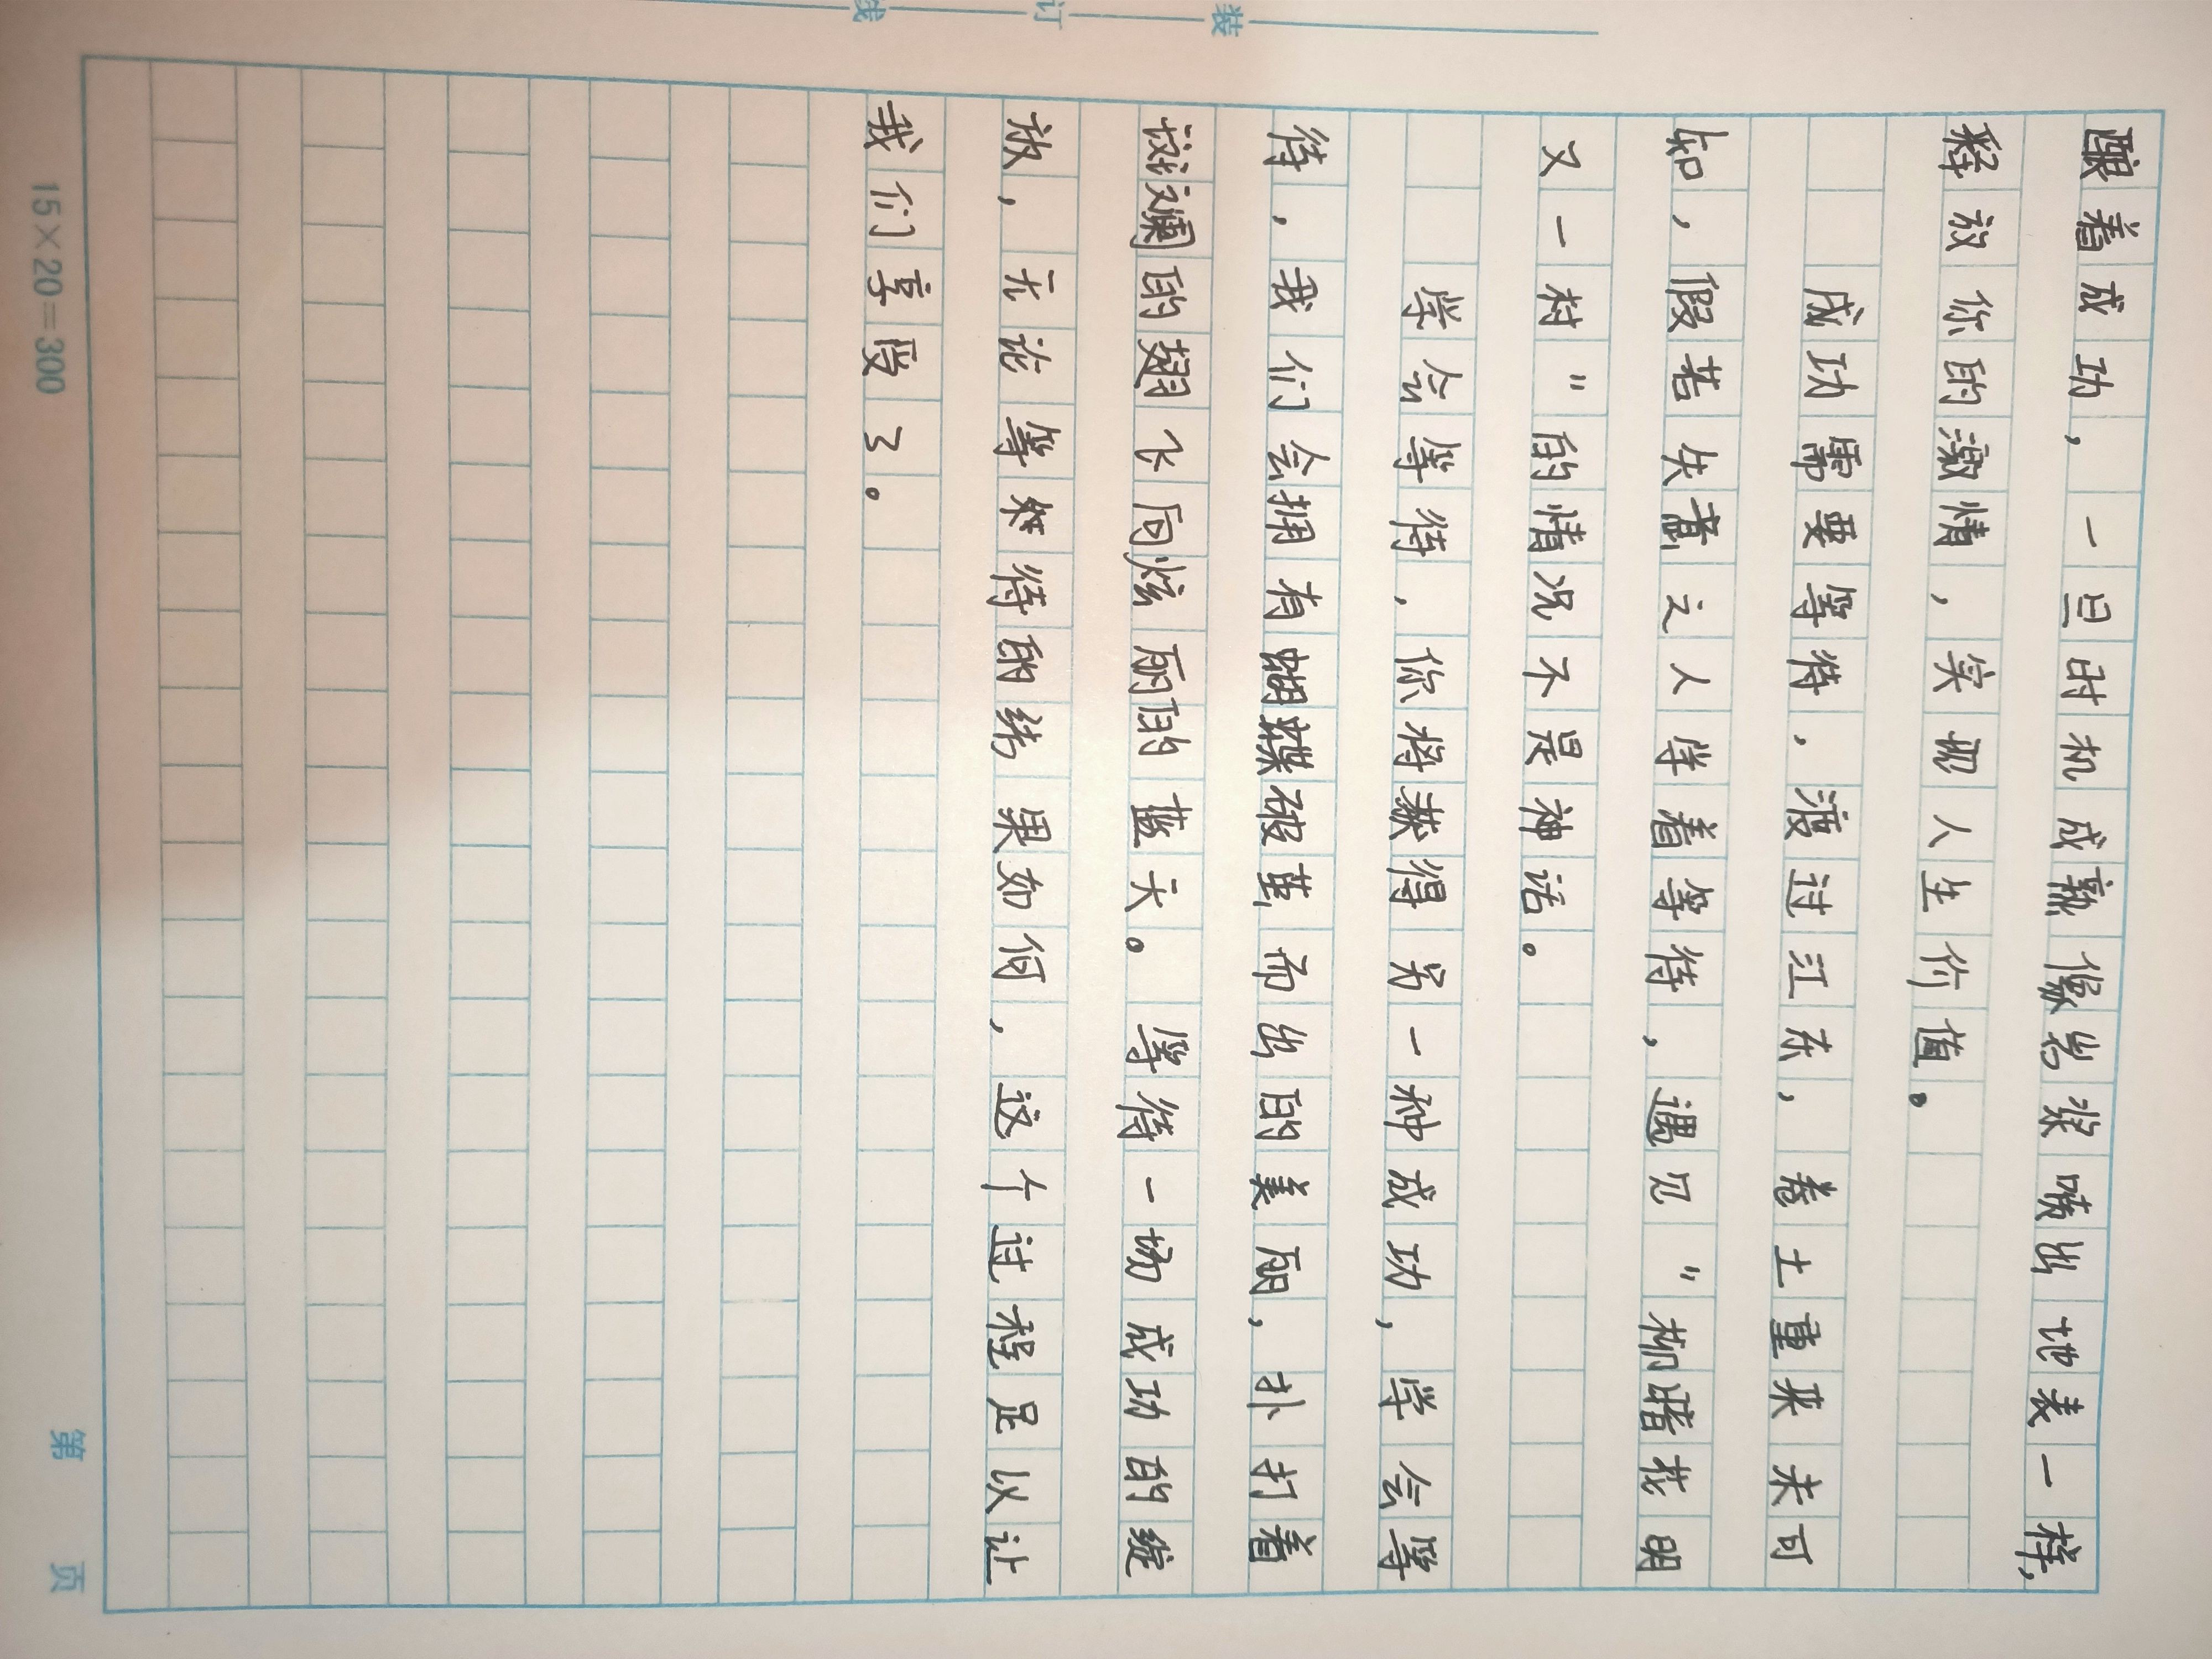 装 订 线
酿着成功，一旦时机成熟像岩浆喷出地表一样，
释放你的激情，实现人生价值。
成功需要等待，渡过江东，卷土重来未可
知，假若失意之人学着等待，遇见“柳暗花明
又一村”的情况不是神话。
学会等待，你将获得另一种成功，学会等
待，我们会拥有蝴蝶破茧而出的美丽，扑打着
斑斓的翅飞向炫丽的蓝天。等待一场成功的绽
放，无论等待的结果如何，这个过程足以让
我们享受了。
15×20=300 第 页